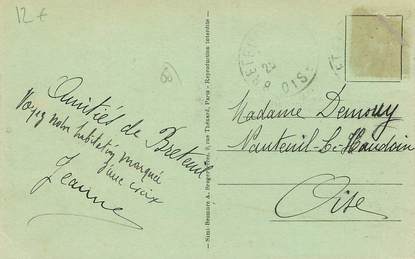 12€
Amitiés de Breteuil
Voyez notre habitation marquée
d'une croix
Jeanne
Simi-Bromure A. Breger frères, 9, rue Thénard, Paris - Reproduction interdite
OISE
Madame Demouy
Nanteuil-le-Haudoin
Oise